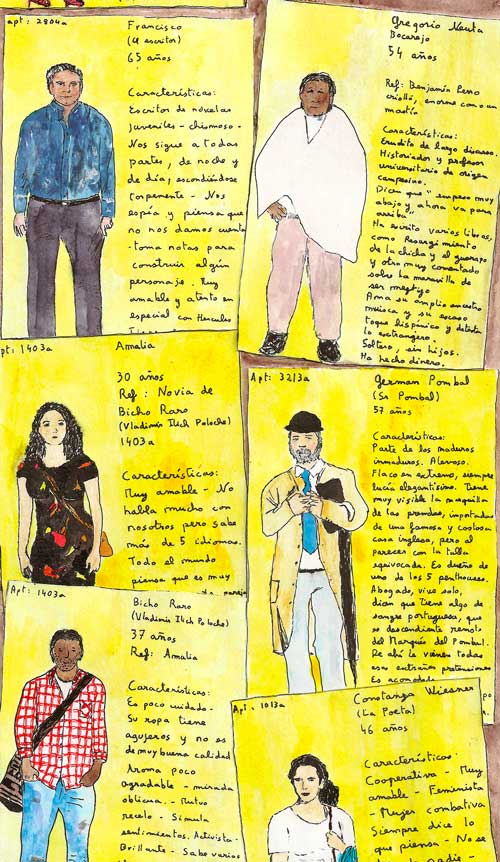 apt: 2804a
Francisco
(el escritor)
65 años
Características:
Escritor de novelas
juveniles - chismoso -
Nos sigue a todas
partes, de noche y
de día, escondiéndose
torpemente - Nos
espía y piensa que
no nos damos cuenta
- toma notas para
construir algún
personaje. Muy
amable y atento en
especial con Hercules
Gregorio Neuta
Bocarejo
54 años
Ref: Benjamín Perro
criollo, enorme como un
mastín
Características:
Erudito de largo discurso.
Historiador y profesor
universitario de origen
campesino.
Dicen que "empezo muy
abajo y ahora va para
arriba"
Ha escrito varios libros,
como Resurgimiento
de la chicha y el guarapo
y otro muy comentado
sobre la maravilla de
ser mestizo
Ama su amplio ancestro
muisca y su escaso
toque hispánico y detesta
lo extranjero.
Soltero, sin hijos.
Ha hecho dinero.
Apt: 1403a
Amalia
30 años
Ref: Novia de
Bicho Raro
(Vladimir Ilich Polocho)
1403a
Características:
Muy amable - No
habla mucho con
nosotros pero sabe
más de 5 idiomas.
Todo el mundo
piensa que es muy
pareja
Apt: 3213a
German Pombal
(Sr Pombal)
57 años
Características:
Parte de los maduros
inmaduros. Alevoso.
Flaco en extremo, siempre
lucía elegantísimo. Tiene
muy visible la marquilla
de las prendas, importadas
de una famosa y costosa
casa inglesa, pero al
parecer con la talla
equivocada. Es dueño de
uno de los 5 penthouses.
Abogado, vive solo,
dicen que tiene algo de
sangre portuguesa, que
es descendiente remoto
del Marqués del Pombal.
De ahí le vienen todas
esas extrañas pretensiones
Es acomodado
Apt: 1403a
Bicho Raro
(Vladimir Ilich Polocho)
37 años
Ref: Amalia
Características:
Es poco cuidado -
Su ropa tiene
agujeros y no es
de muy buena calidad
Aroma poco
agradable - mirada
oblicua. - Mutuo
recelo - Simula
sentimientos. Activista -
Brillante - Sabe varios
Apt: 1013a
Constanza Wiesner
(La Poeta)
46 años
Características:
Cooperativa - Muy
amable - Feminista
- Mujer combativa
Siempre dice lo
que piensa - No se